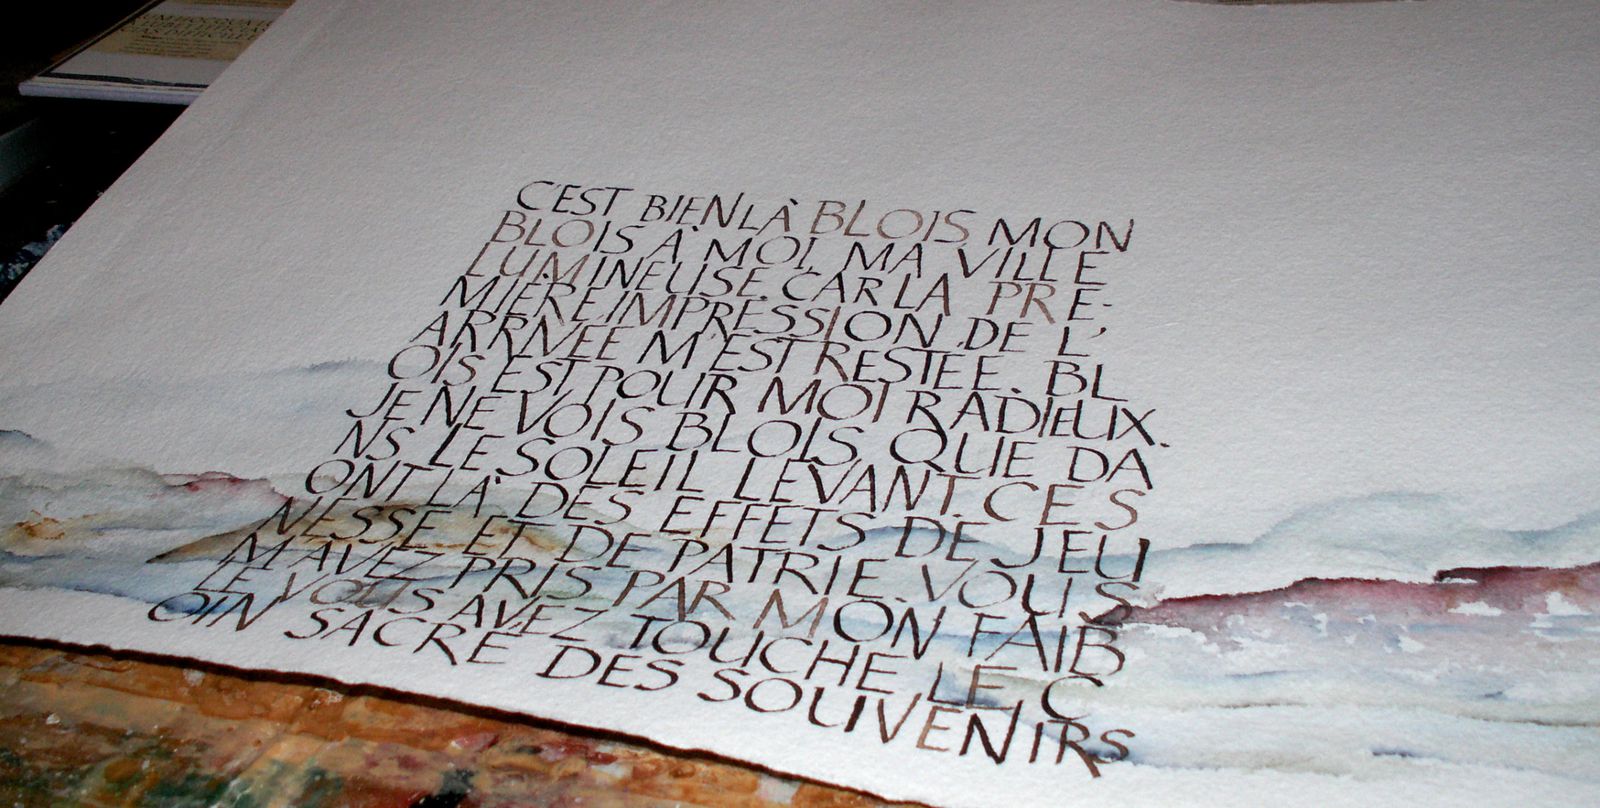 C'EST BIEN LÀ BLOIS MON
BLOIS À MOI, MA VILLE
LUMINEUSE. CAR LA PRE-
MIÈRE IMPRESSION DE L'
ARRIVÉE M'EST RESTÉE. BL
OIS EST POUR MOI RADIEUX.
JE NE VOIS BLOIS QUE DA
NS LE SOLEIL LEVANT. CE S
ONT LÀ DES EFFETS DE JEU
NESSE ET DE PATRIE. VOUS
M'AVEZ PRIS PAR MON FAIB
LE VOUS AVEZ TOUCHE LE C
OIN SACRE DES SOUVENIRS